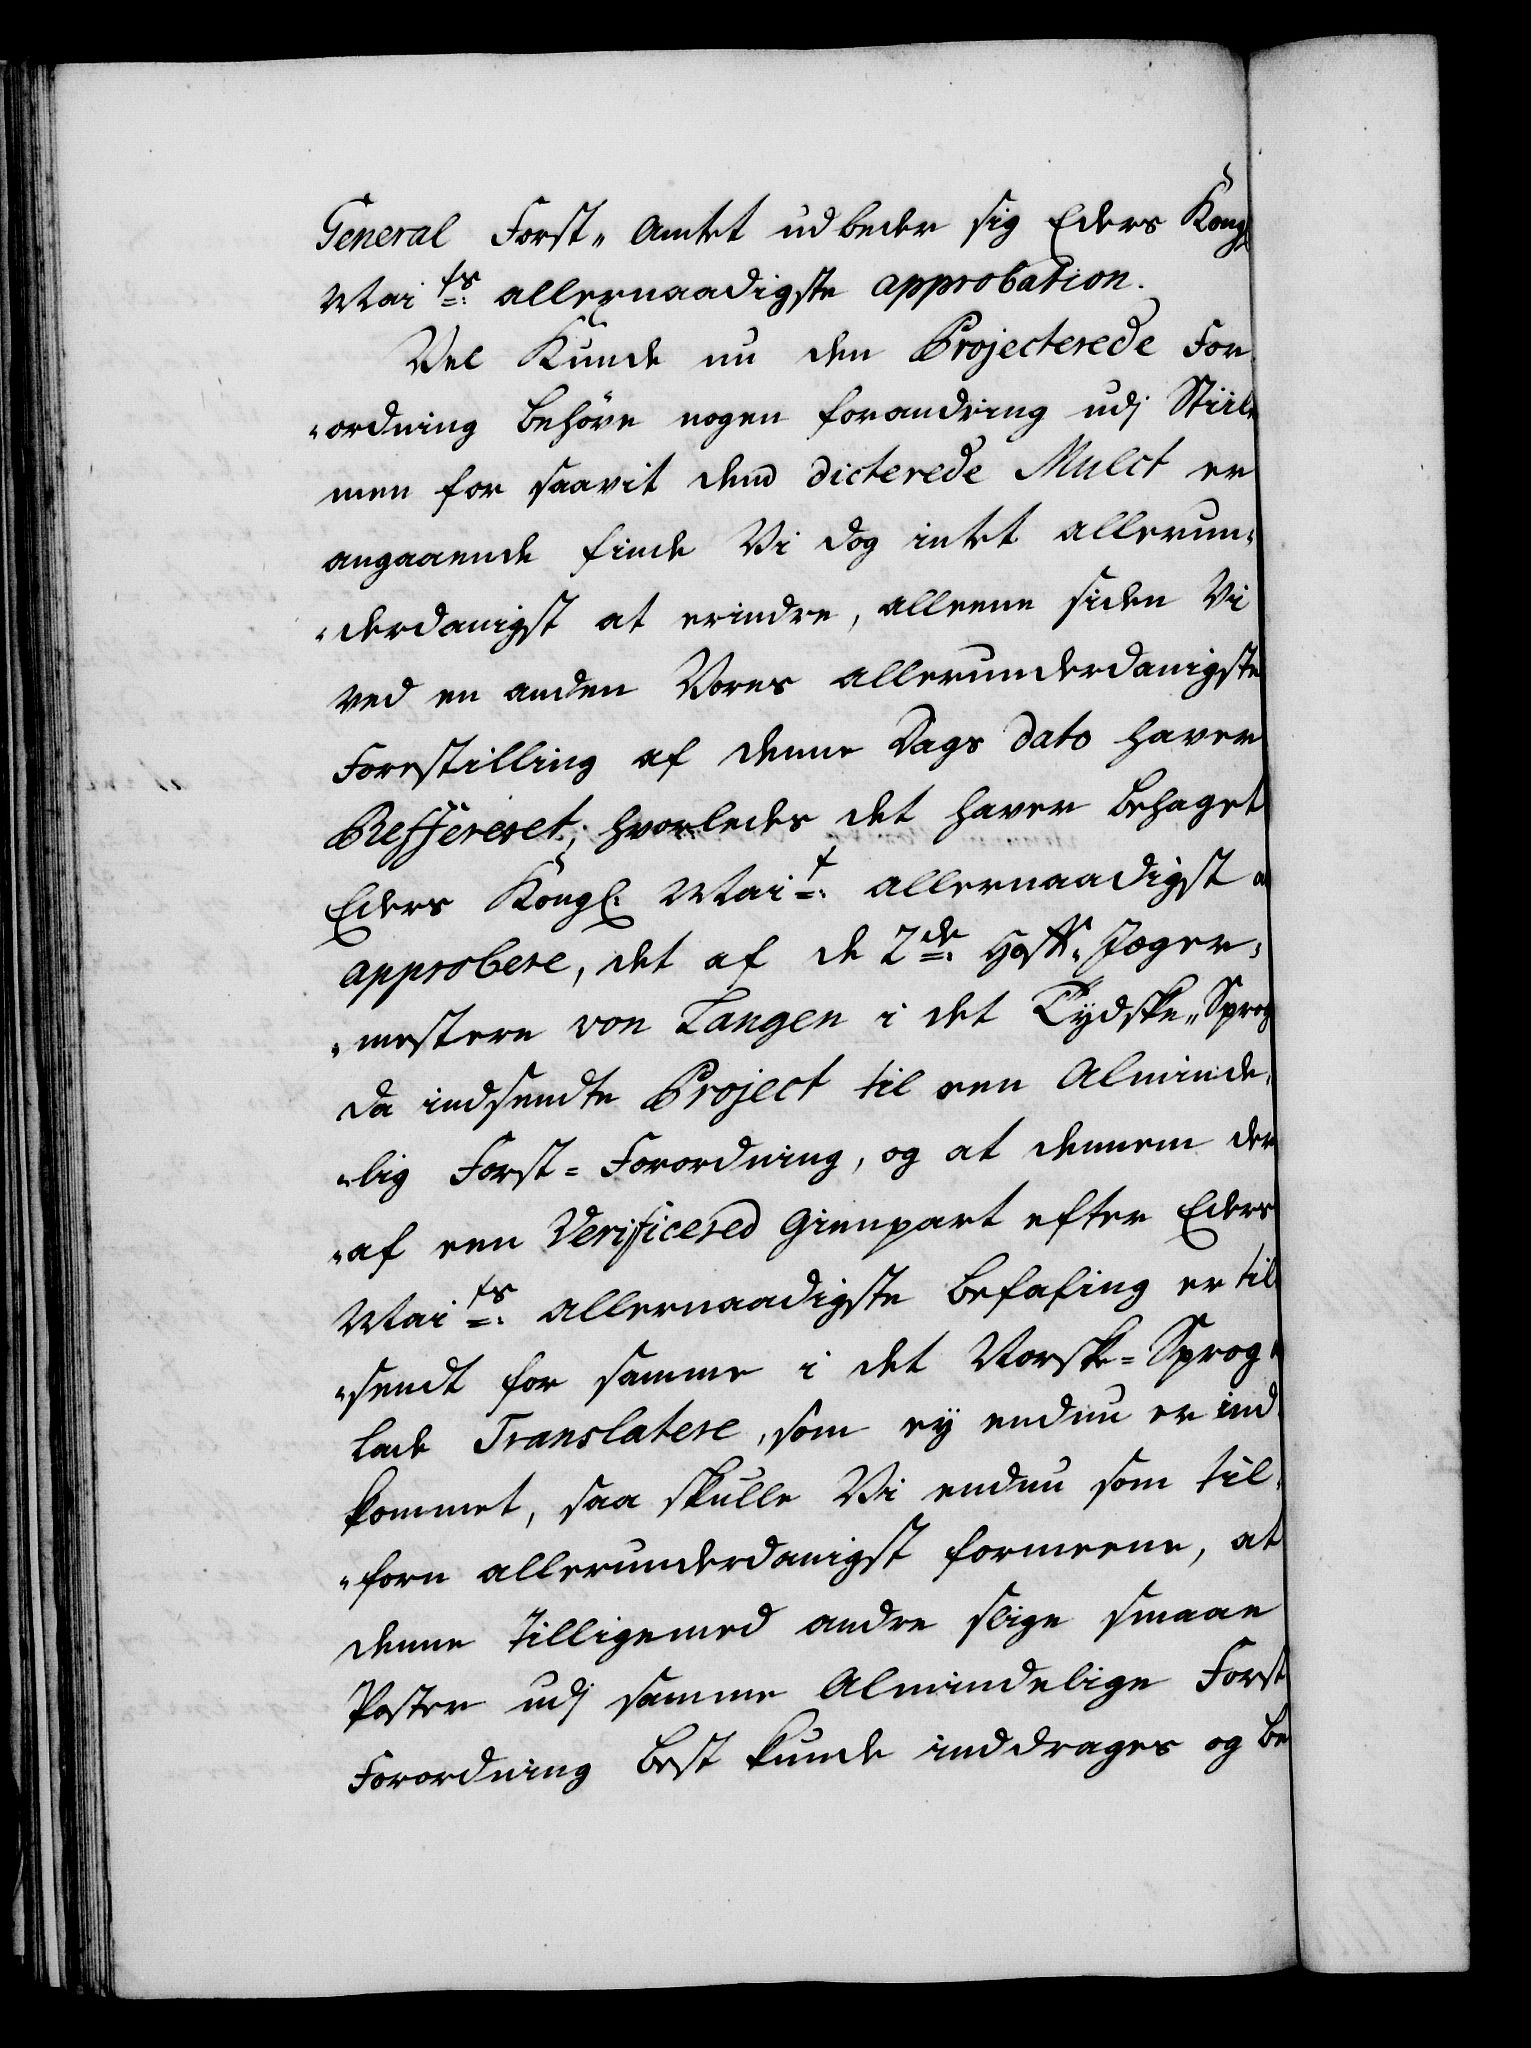 General Forst„ Amtet udbeder sig Eders Kongl
Mai ts: allernaadigste approbation.
Vel Kunde nu den Projecterede For
„ordning behöve nogen forandring udj Stiil
men for saavit dend dicterede Mulct er
angaaende finde Vi dog intet allerun„
„derdanigst at erindre, alleene siden Vi
ved en anden Vores allerunderdanigste
Forestilling af denne Dags dato haver
Reffereret, hvorledes det haver behaget
Eders Kongl: Mai t: allernaadigst a
approbere, det af de 2de: Hoff„ Jæger„
„mestere von Langen i det Tydske„ Sprog
da indsendte Project til een Alminde„
„lig Forst= Forordning, og at dennem der
„af een Verificered Gienpart efter Eders
Mai ts: allernaadigste Befaling er til
„sendt for samme i det Norske= Sprog
lade Translatere, som ey endnu er ind
kommet, saa skulle Vi endnu som til„
„forn allerunderdanigst formeene, at
denne tilligemed andre slige smaae
Poster udj samme Almindelige Forst
Forordning best kunde inddrages og be